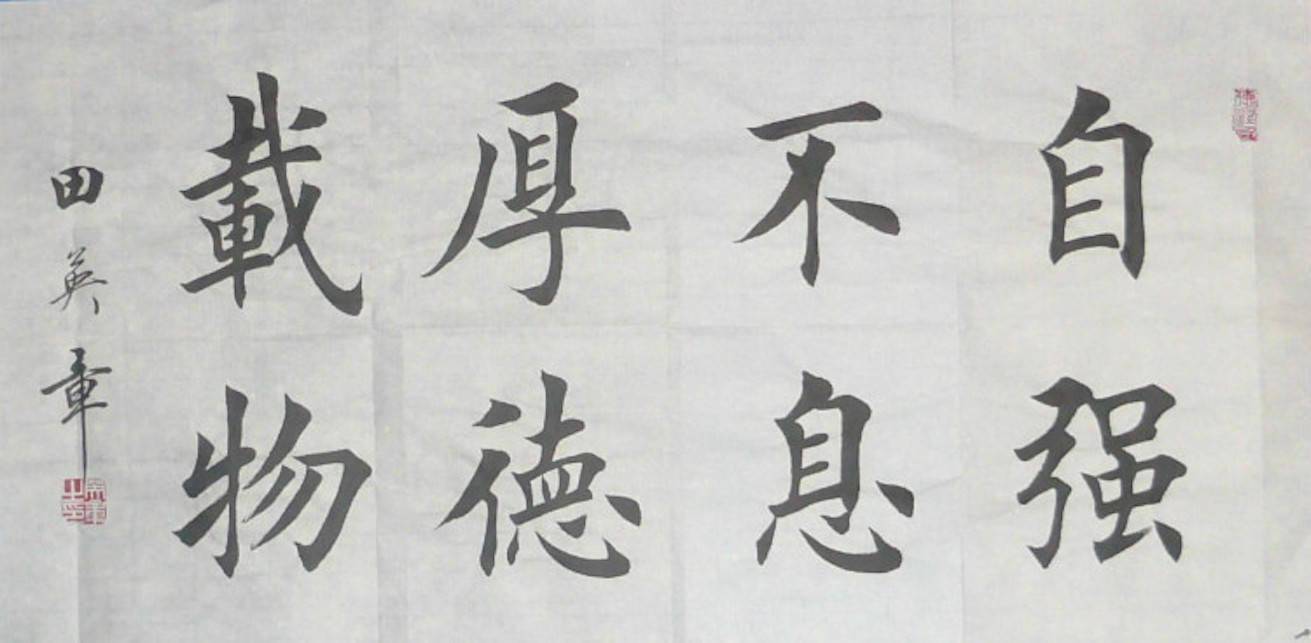 自强
不息
厚德
載物
田英章